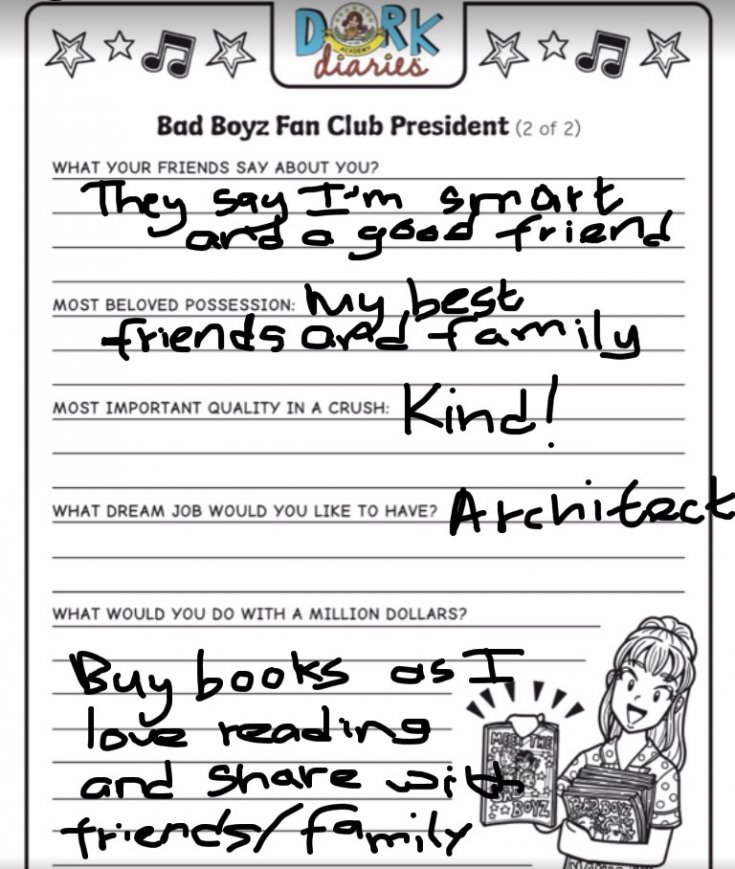 DORK
ACADEMY
diaries
Bad Boyz Fan Club President (2 of 2)
WHAT YOUR FRIENDS SAY ABOUT YOU?
They say I'm smart
and a good friend
MOST BELOVED POSSESSION: My best
friends and family
MOST IMPORTANT QUALITY IN A CRUSH: Kind!
WHAT DREAM JOB WOULD YOU LIKE TO HAVE? Architect
WHAT WOULD YOU DO WITH A MILLION DOLLARS?
Buy books as I
love reading
and share with
friends/family
MEET THE
BOYZ
BAD BOYZ